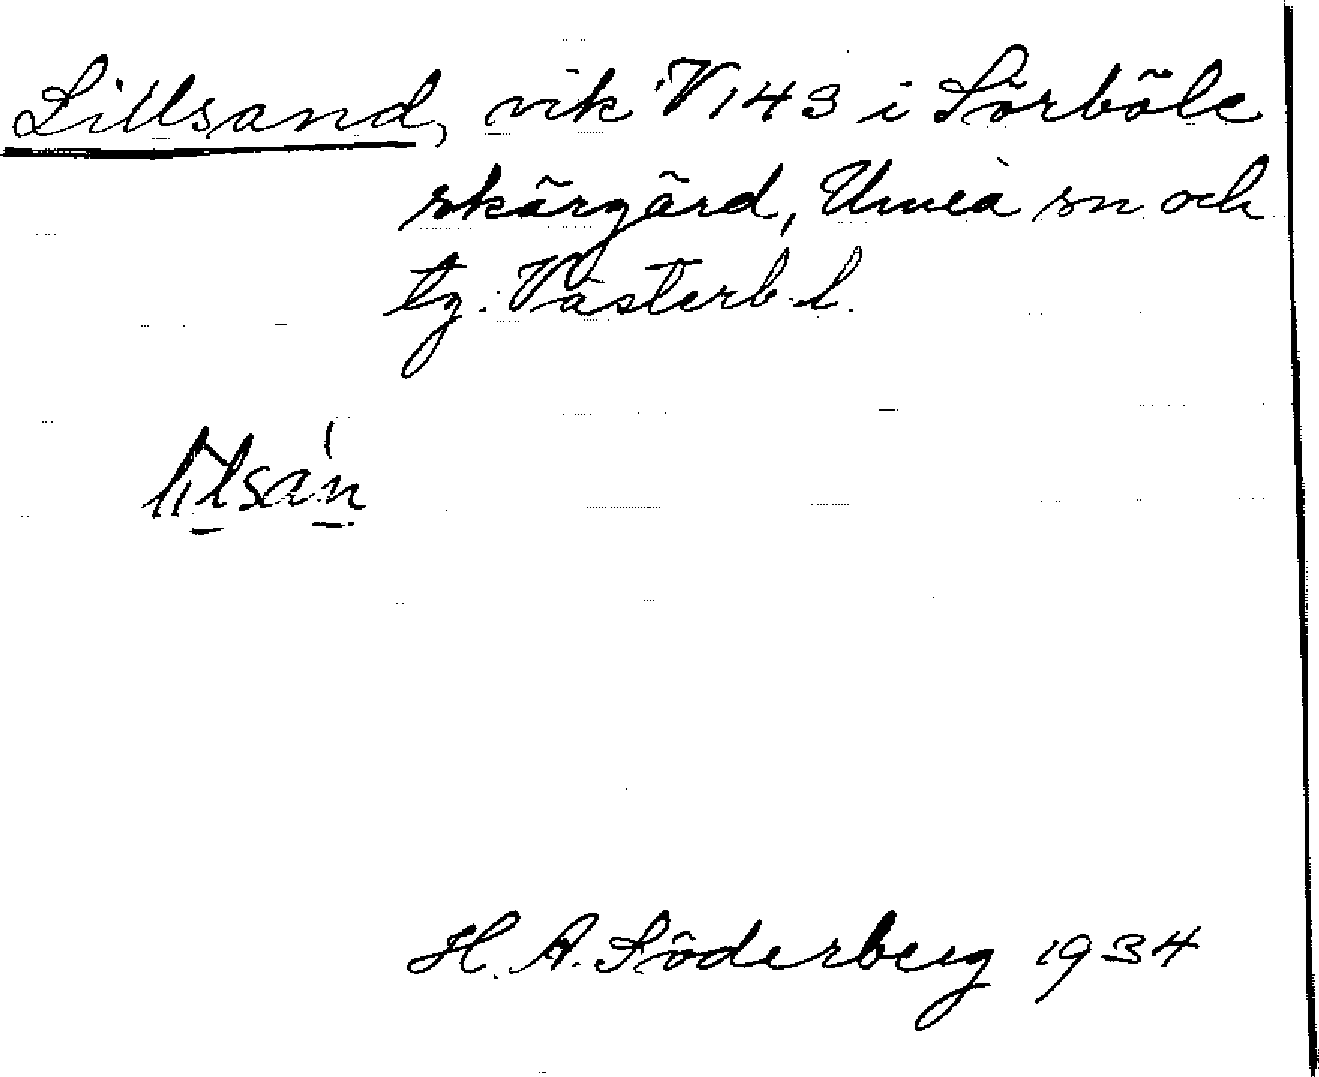 Lillsand, vik V 143 i Sörböle
skärgård, Umeå sn och
tg. Västerb. l.
lilsán
H. A. Söderberg 1934